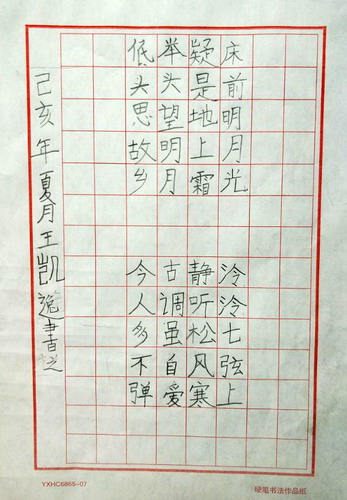 床前明月光
疑是地上霜
举头望明月
低头思故乡
泠泠七弦上
静听松风寒
古调虽自爱
今人多不弹
己亥年夏月王凯逸书之
YXHC6865-07
硬笔书法作品纸